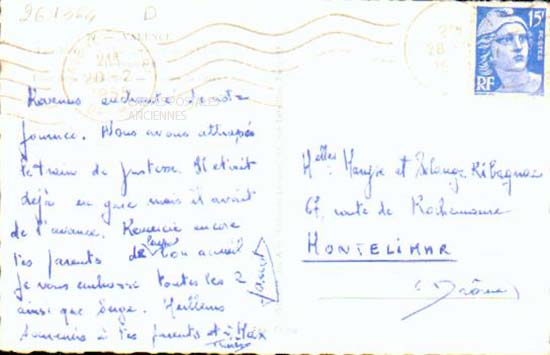 26-1
D
VALENCE
21H
20-2
15F
POSTES
RF
28
CARTES POSTALES
ANCIENNES
Revenus enchantés de notre
journée. Nous avons attrapés
le train de justesse. Il était
déjà en gare mais il avait
de l'avance. Remercie encore
tes parents de leur bon accueil
Je vous embrasse toutes les 2
ainsi que Serge. Meilleurs
souvenirs à tes parents et à Max
Helles et Solange Ribagnac
67, route de Rochemaure
MONTELIMAR
Drôme